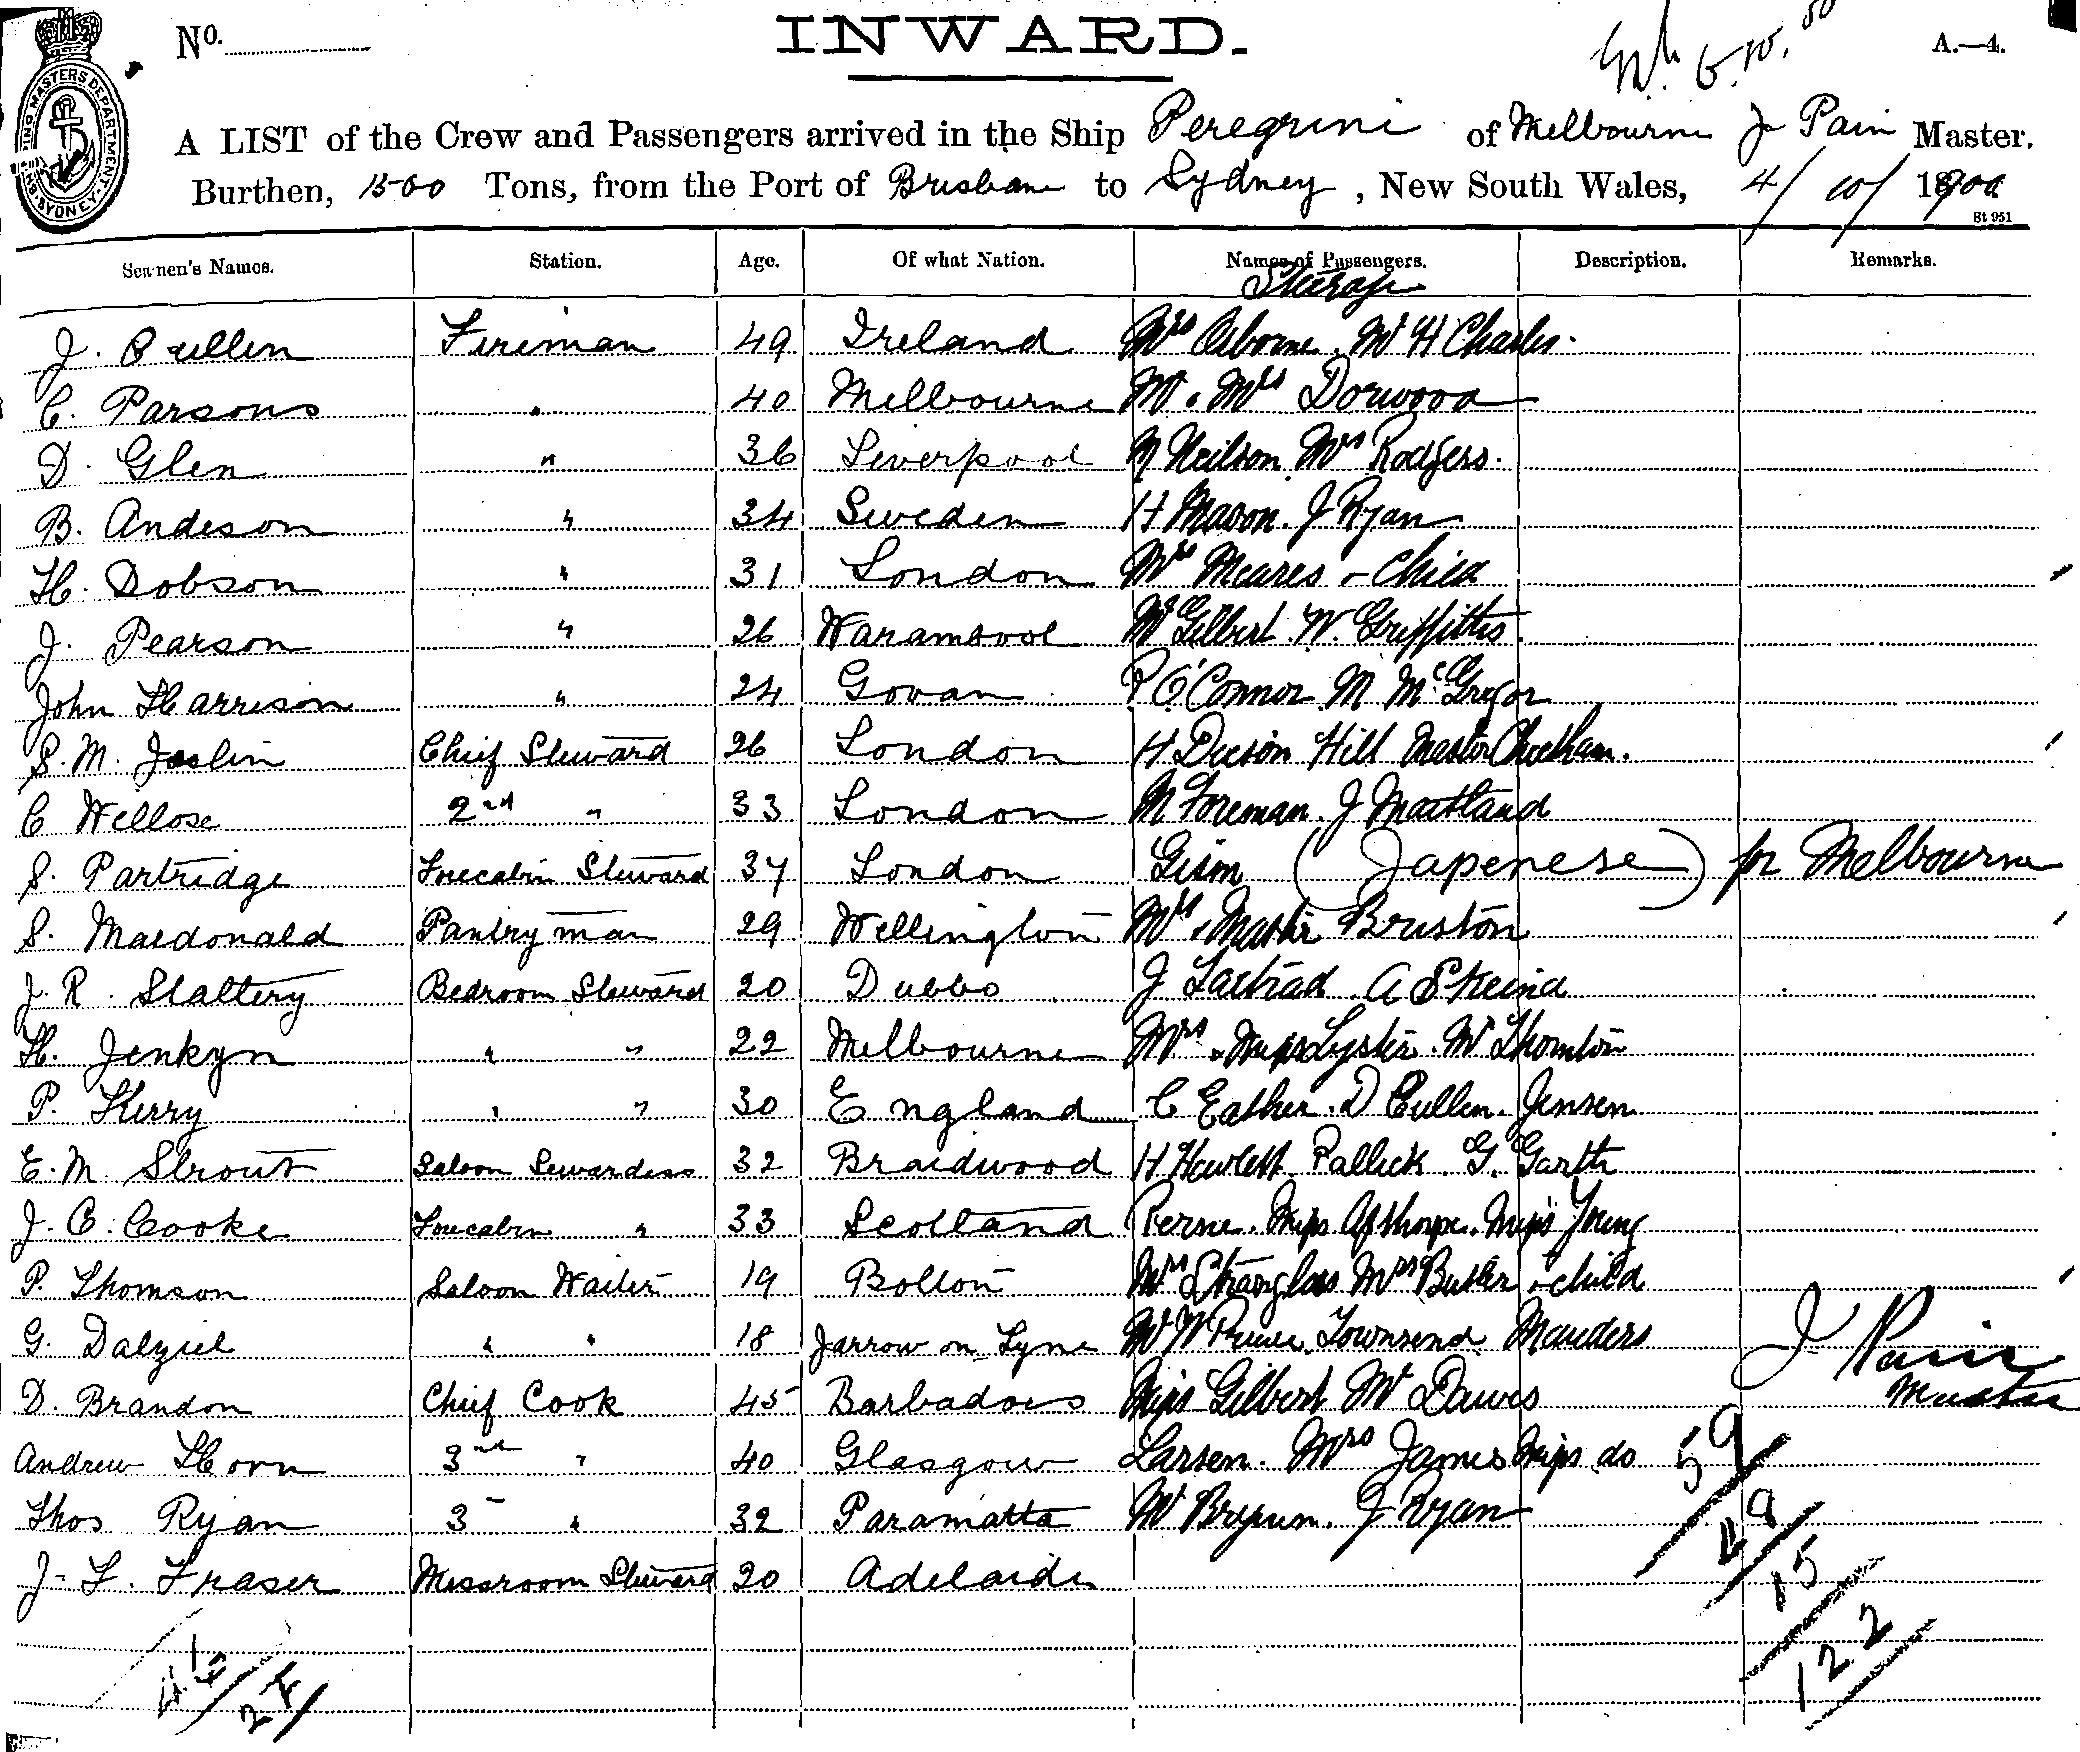 No. INWARD. A.—4.
SHIPPING MASTERS DEPARTMENT SYDNEY
A LIST of the Crew and Passengers arrived in the Ship Peregrine of Melbourne J Pain Master.
Burthen, 1500 Tons, from the Port of Brisbane to Sydney, New South Wales, 4/10/1900
St 951
Seamen's Names. Station. Age. Of what Nation. Names of Passengers. Description. Remarks.
Steerage
J. Cullen Fireman 49 Ireland Mrs Osborne. Mr H Charles.
C. Parsons " 40 Melbourne Mr & Mrs Dorwood
D. Glen " 36 Liverpool N Neilson Mrs Rodgers.
B. Andeson " 34 Sweden H Mason. J Ryan
H. Dobson " 31 London Mrs Meares & Child
J. Pearson " 26 Warambool Mr Gilbert. W. Griffiths.
John Harrison " 24 Govan P O'Connor M McGregor
S. M. Joslin Chief Steward 26 London H Deeson Hill Master Cheetham.
C Wellose 2nd " 33 London M Foreman. J Maitland
S. Partridge Forecabin Steward 37 London Gism (Japenese) for Melbourne
S. Macdonald Pantryman 29 Wellington Mrs & Master Bruston
J. R. Slattery Bedroom Steward 20 Dubbo J A
H. Jenkyn " " 22 Melbourne Mrs & Miss Lyster. Mr Thornton
P. Kerry " " 30 England C Eather. D Cullen. Jensen
E. M. Strout Saloon Sewardess 32 Braidwood H Hewlett. Pallick. G. Garth
J. C. Cooke Forecabin " 33 Scotland Perne. Miss Apthorpe. Miss Young
P. Thomson Saloon Waiter 19 Bolton Mrs Mrs Butler & child
G. Dalziel " " 18 Jarrow on Tyne Mr W Townsend Mauders
D. Brandon Chief Cook 45 Barbadoes Miss Gilbert Mr Davis
J Pain
Master
Andrew Horn 3nd " 40 Glasgow Larsen. Mrs James Miss do
Thos Ryan 3 " 32 Paramatta Mr J Ryan
J. F. Fraser Messroom Steward 20 Adelaide
59
48
15
122
24